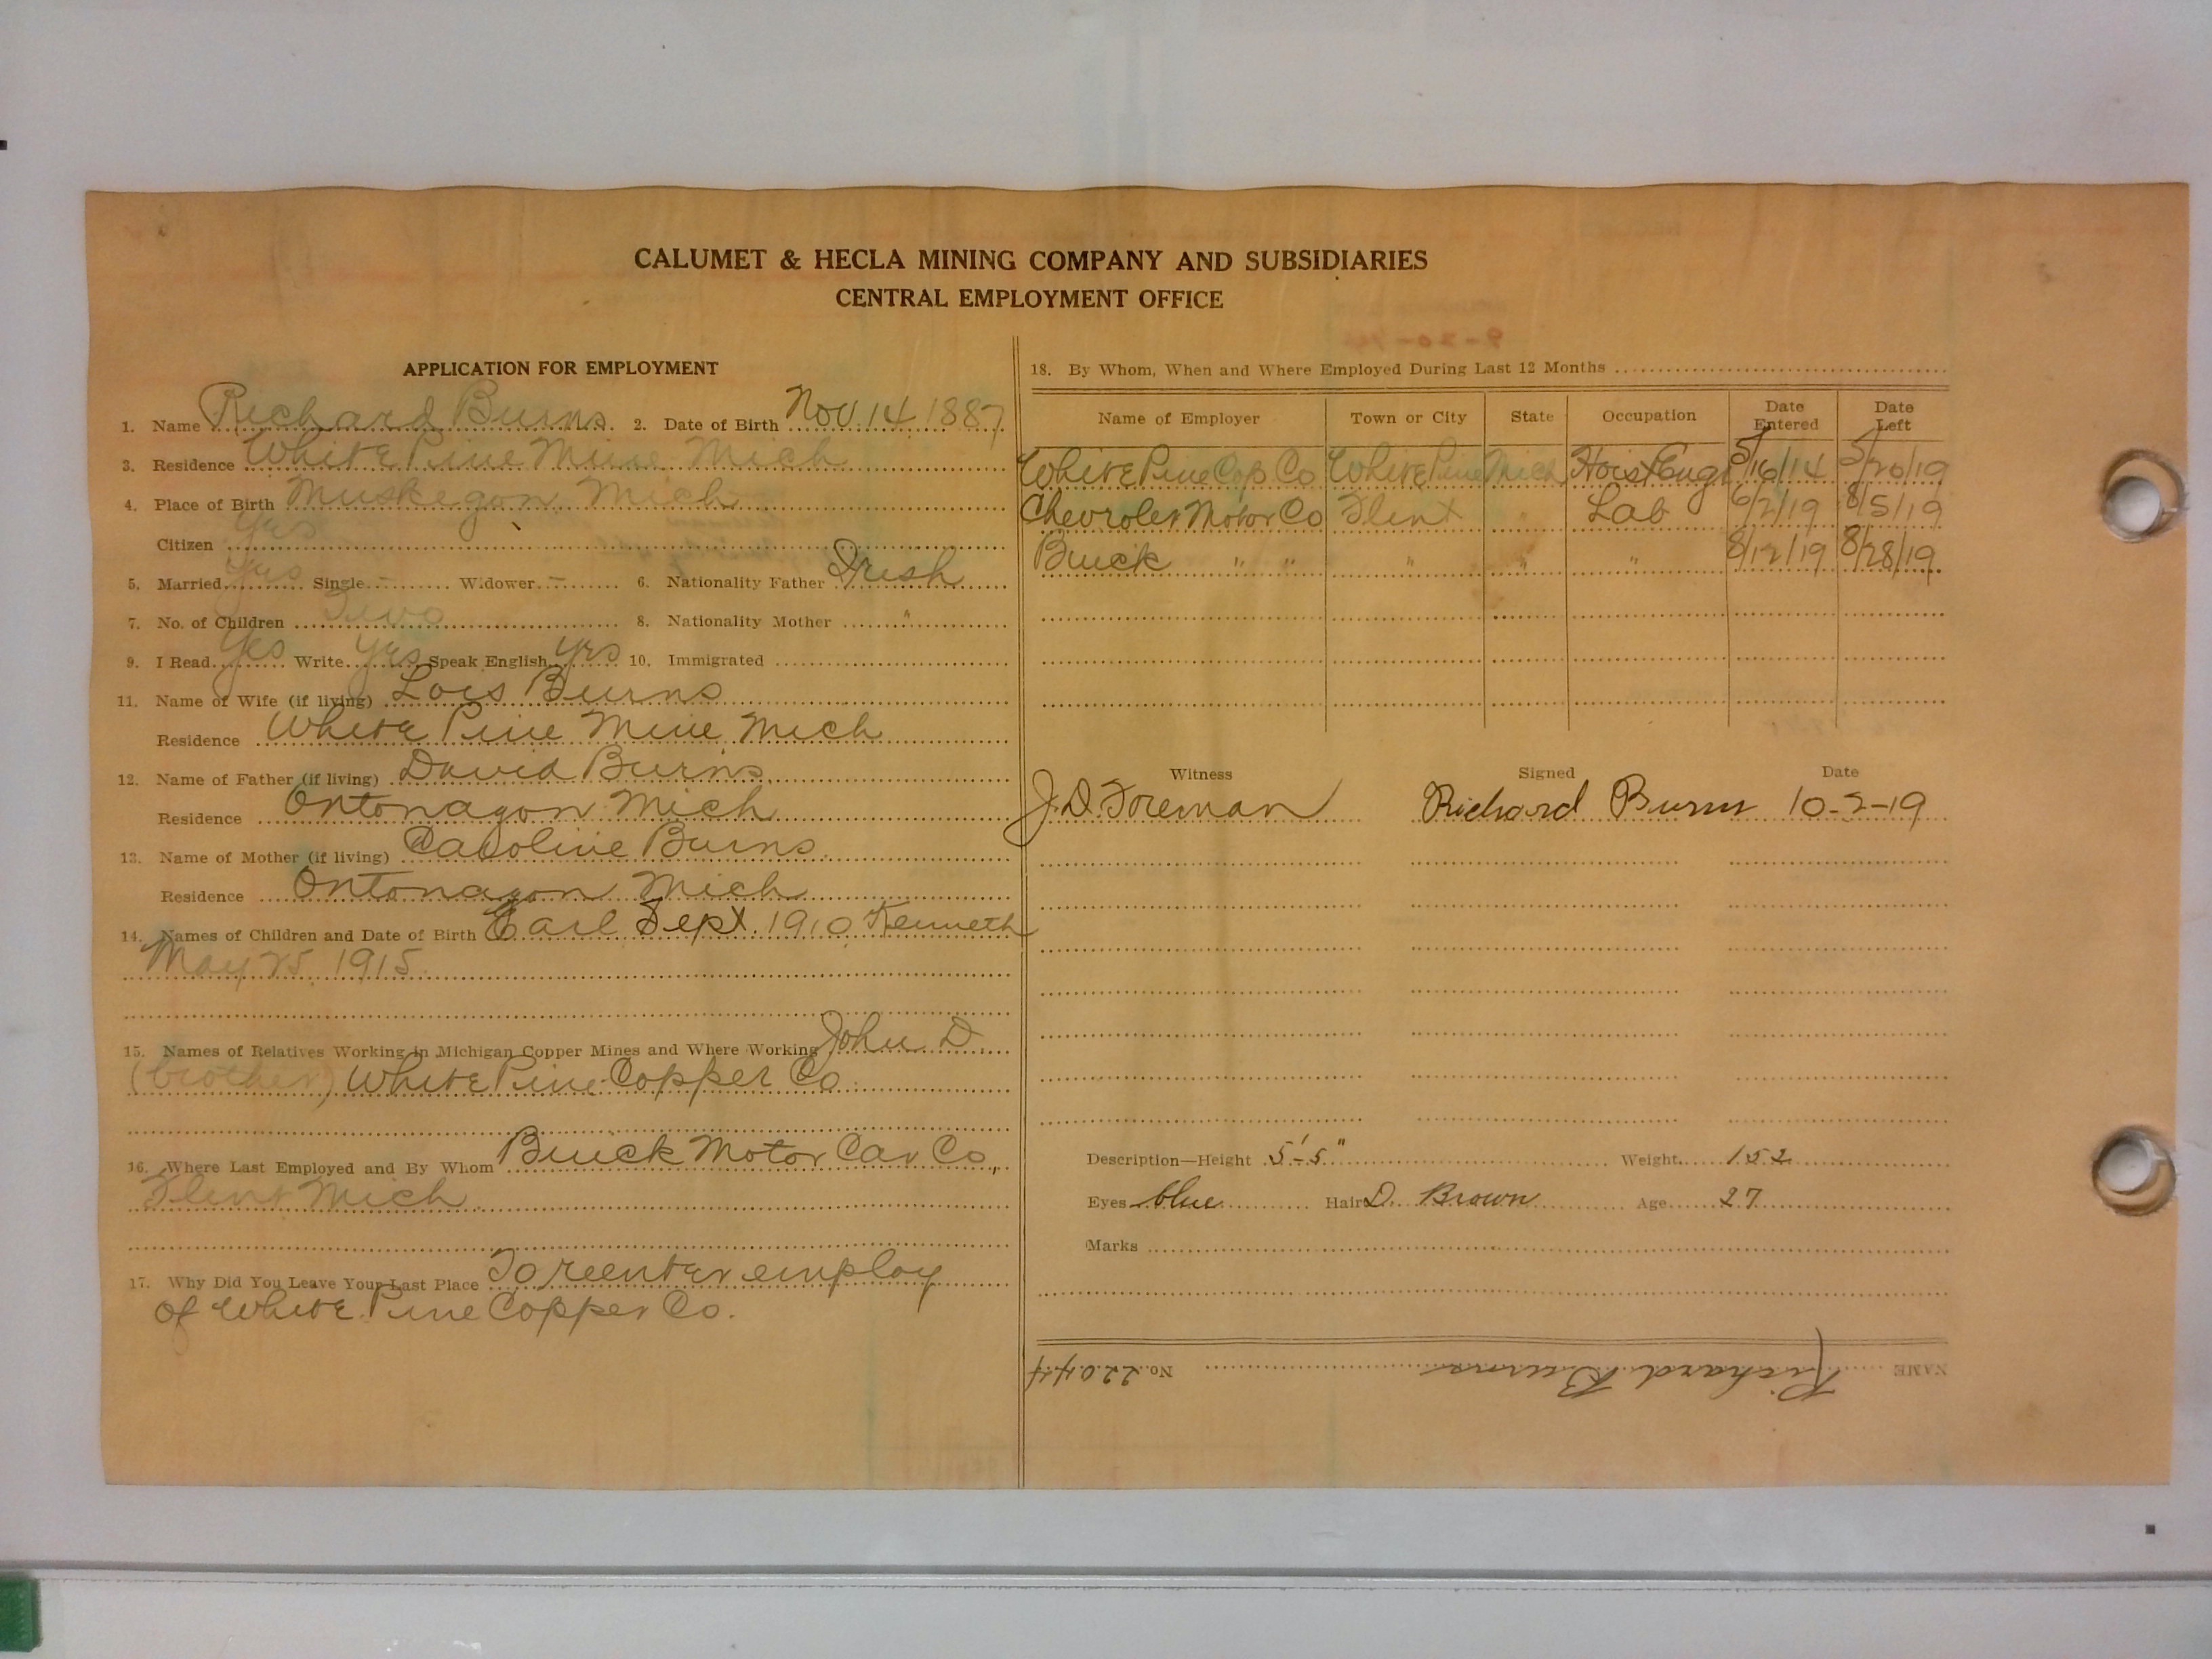 CALUMET & HECLA MINING COMPANY AND SUBSIDIARIES
CENTRAL EMPLOYMENT OFFICE
APPLICATION FOR EMPLOYMENT
1. Name Richard Burns 2. Date of Birth Nov. 14 1887
3. Residence White Pine Mine Mich
4. Place of Birth Muskegon Mich
Citizen Yes
5. Married Yes Single - Widower - 6. Nationality Father Irish
7. No. of Children Two 8. Nationality Mother "
9. I Read Yes Write Yes Speak English Yes 10. Immigrated
11. Name of Wife (if living) Lois Burns
Residence White Pine Mine Mich
12. Name of Father (if living) David Burns
Residence Ontonagon Mich
13. Name of Mother (if living) Caroline Burns
Residence Ontonagon Mich
14. Names of Children and Date of Birth Earl Sept. 1910 Kenneth
May 25 1915
15. Names of Relatives Working in Michigan Copper Mines and Where Working John D
(brother) White Pine Copper Co
16. Where Last Employed and By Whom Buick Motor Car Co,
Flint Mich
17. Why Did You Leave Your Last Place To reenter employ
of White Pine Copper Co.
18. By Whom, When and Where Employed During Last 12 Months
Name of Employer Town or City State Occupation Date Entered Date Left
White Pine Cop Co White Pine Mich Hoist Engr 5/16/14 5/20/19
Chevrolet Motor Co Flint " Lab 6/2/19 8/5/19
Buick " " " " " 8/12/19 8/28/19
Witness Signed Date
J. D. Foreman Richard Burns 10-2-19
Description—Height 5'-5" Weight 152
Eyes blue Hair D. Brown Age 27
Marks
NAME Richard Burns No. 22044